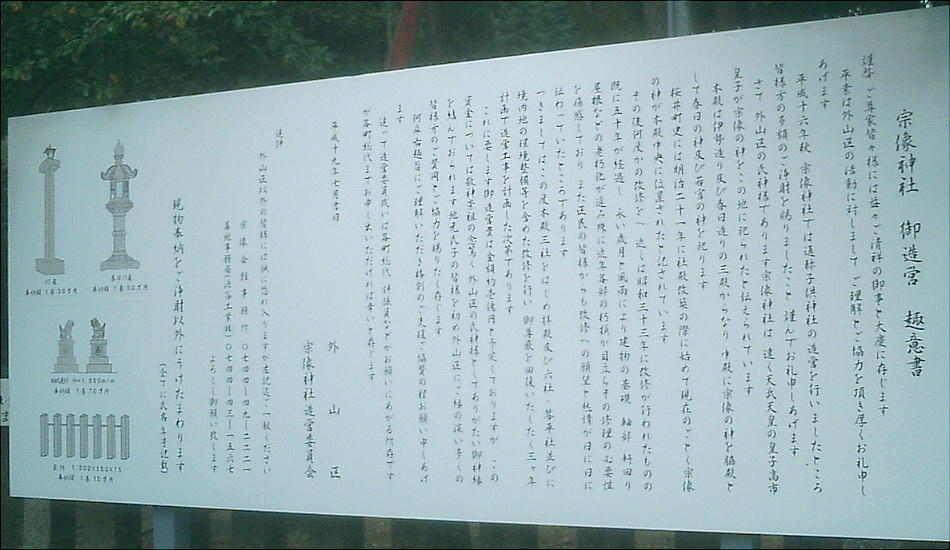 宗像神社　御造営　趣意書
謹啓　ご尊家皆々様には益々ご清祥の御事と大慶に存じます
平素は外山区の活動に対しまして　ご理解とご協力を頂き厚くお礼申し
あげます
平成十六年秋　宗像神社では道祖子供神社の造営を行いましたところ
皆様方の多額のご浄財を賜りましたこと　謹んでお礼申しあげます
さて　外山区の氏神様であります宗像神社は　遠く天武天皇の皇子高市
皇子が宗像の神をこの地に祀られたと伝えられています
本殿は伊勢造り及び春日造りの三殿からなり　中殿に宗像の神を脇殿と
して春日の神及び若宮の神を祀ります
桜井町史には明治二十一年に社殿改築の際に始めて現在のごとく宗像
の神が本殿中央に位置されたと記されています
その後何度かの改修をへ　近くは昭和三十三年に改修が行われたものの
既に五十年が経過し　永い歳月と風雨により建物の基礎　軸部　軒回り
屋根などの老朽化が進み殊に近年各部の朽損が目立ちその修理の必要性
を痛感しており　また区民の皆様からも改修への願望と熱情が日に日に
伝わっていたところであります
つきましてはこの度本殿三社をはじめ拝殿及び六社・琴平社並びに
境内地の環境整備等を含めた改修を行い　御尊厳を回復いたしたく三ヶ年
計画で造営工事を計画した次第であります
これに要します御造営費は金額約壱億円と予定しておりますが　この
資金については敬神崇祖の念篤く外山区の氏神様としてありがたい御神縁
を結んでおられます地元氏子の皆様を初め外山区にご縁の深い多くの
皆様方のご賛同とご協力を賜りたく存じます
何卒右趣旨にご理解いただき格別のご支援ご協賛の程お願い申しあげ
ます
追って造営委員或いは各町総代　評議員などがお願いにあがる所存です
が各町総代までお申し出いただければ幸いと存じます
平成十九年七月吉日
外　山　区
宗像神社造営委員会
追伸
外山区以外の皆様には誠に恐れ入りますが左記迄ご一報ください
宗像会館事務所　〇七四四-四九-二二二一
〇七四四-四三-一五六七
よろしく御願い致します
現物奉納をご浄財以外にうけたまわります
（全てに氏名年号記載）
灯篭
奉納額　1基30万円
春日灯篭
奉納額　1基50万円
H=1,350m/m
奉納額　1基70万円
玉垣　1,200X150X75
奉納額　1基10万円